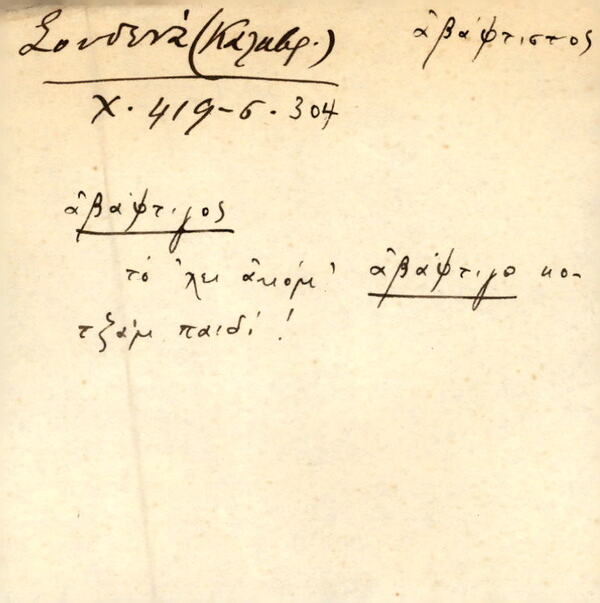 Σουδενά (Καλαβρ.)
ἀβάφτιστος
Χ. 419-σ. 304
ἀβάφτιγος
τό 'χει ἀκόμ' ἀβάφτιγο κο-
τζάμ παιδί!